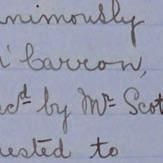 nimously
Carron,
cd by Mr Scot
uested to